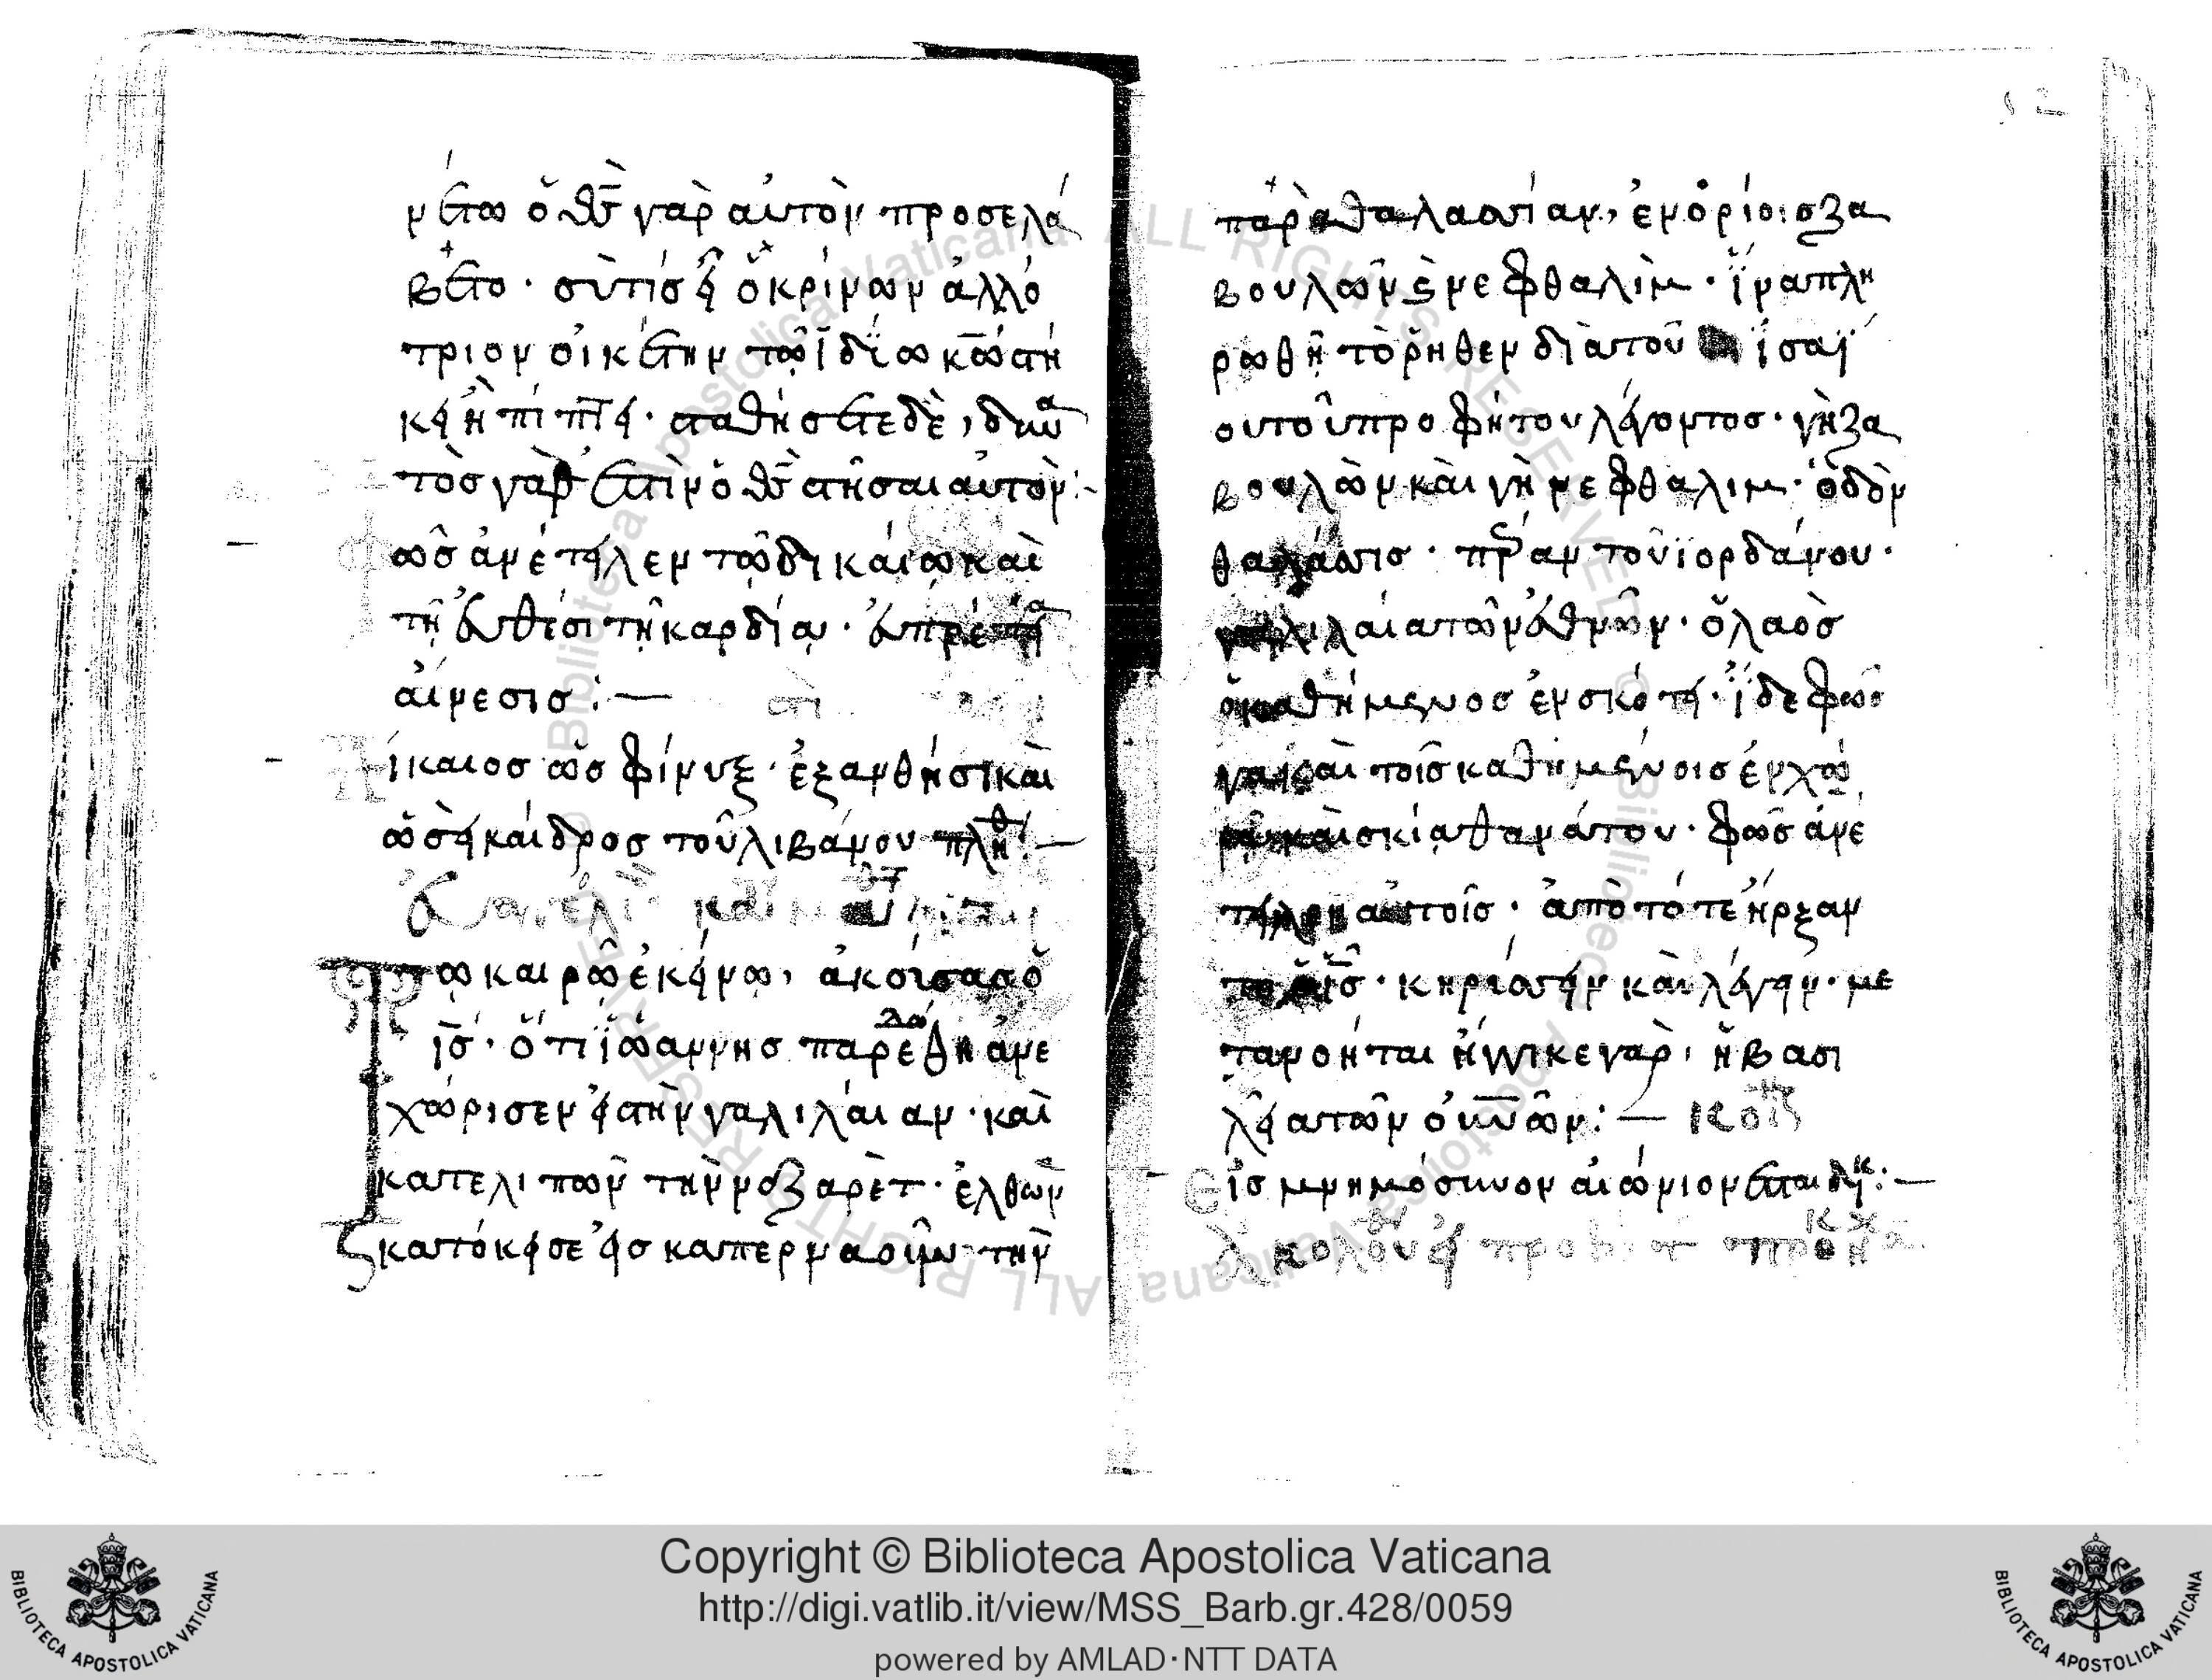 νέτω ὁ θς γὰρ αὐτὸν προσελά
βετο · σὺ τίς εἶ ὁ κρίνων ἀλλό
τριον οἰκέτην τῶ ἰδίω κω στή
κει ἢ πίπτει · σταθήσετε δὲ, δυνα
τὸς γὰρ ἐστὶν ὁ θς στῆσαι αὐτὸν :~
ῶς ἀνέτειλεν τῶ δικάιω καὶ
τῆ ἐυθέσι τῆ καρδία · ἐυπρέπει
αἴνεσις : —
ίκαιος ὡς φίνυξ · ἐξανθήσι καὶ
ὡσὴ καίδρος τοῦ λιβάνου πληθ : —
Τῶ καιρῶ ἐκείνω, ἀκούσας ὁ
ις · ὅτι ἰωάννης παρεδώθη ἀνε
χώρισεν εἰς τὴν γαλιλάιαν · καὶ
κατελιπῶν τὴν ναζαρὲτ · ἐλθὼν
κατόκεισε εἰς καπερναοὺμ τὴν
παρὰθαλασσίαν, ἐν ὁρίοις ζα
βουλῶν ς νεφθαλὶμ · ἵνα πλη
ρωθῆ τὸ ῥηθὲν διὰ τοῦ ἰσαΐ
ου τοῦ προφήτου λέγοντος · γὴ ζα
βουλὼν κὰι γὴ νεφθαλιμ · ὁδὸν
θαλάσσις · πέραν τοῦ ἰορδάνου ·
γαλιλαία τῶν ἐθνῶν · ὁ λαὸς
ὁ καθήμενος ἐν σκότει · ἴδε φῶς
μέγα καὶ τοῖς καθημένοις ἐν χώ
ρα καὶ σκία θανάτου · φῶς ἀνέ
τειλεν αὐτοῖς · ἀπὸ τότε ἤρξαν
το ὁ ις · κηρύσσειν κὰι λέγειν · με
τανοήται ἤγγικε γὰρ, ἡ βασι
λεία τῶν ουνων : —
Εἰς μνημόσυνον αἰώνιον ἔσται δικ : —